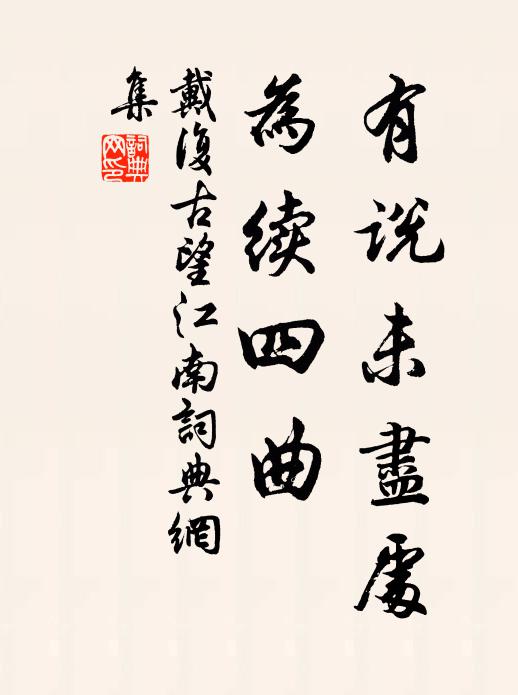 有说未盡處
為续四曲
戴復古望江南詞典網
集
詞典
网印